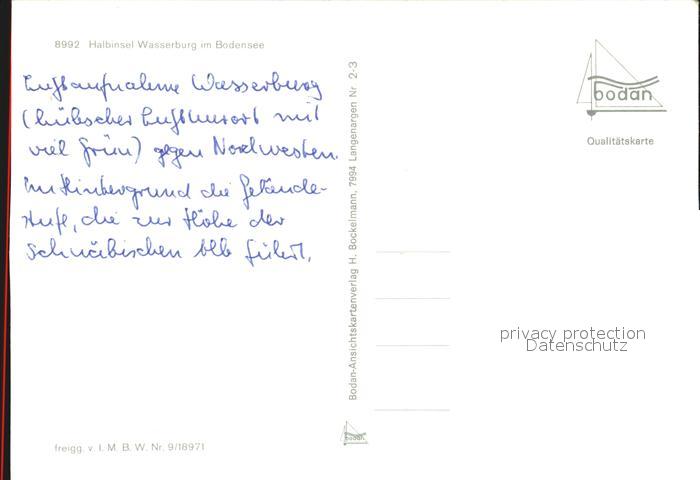 8992 Halbinsel Wasserburg im Bodensee
Luftaufnahme Wasserburg
(hübscher Luftkurort mit
viel Grün) gegen Nordwesten.
Im Hintergrund die Gelände-
stufe, die zur Höhe der
Schwäbischen Alb führt.
freigg. v. I. M. B. W. Nr. 9/18971
Bodan-Ansichtskartenverlag H. Bockelmann, 7994 Langenargen Nr 2-3
bodan
bodan
Qualitätskarte
privacy protection
Datenschutz